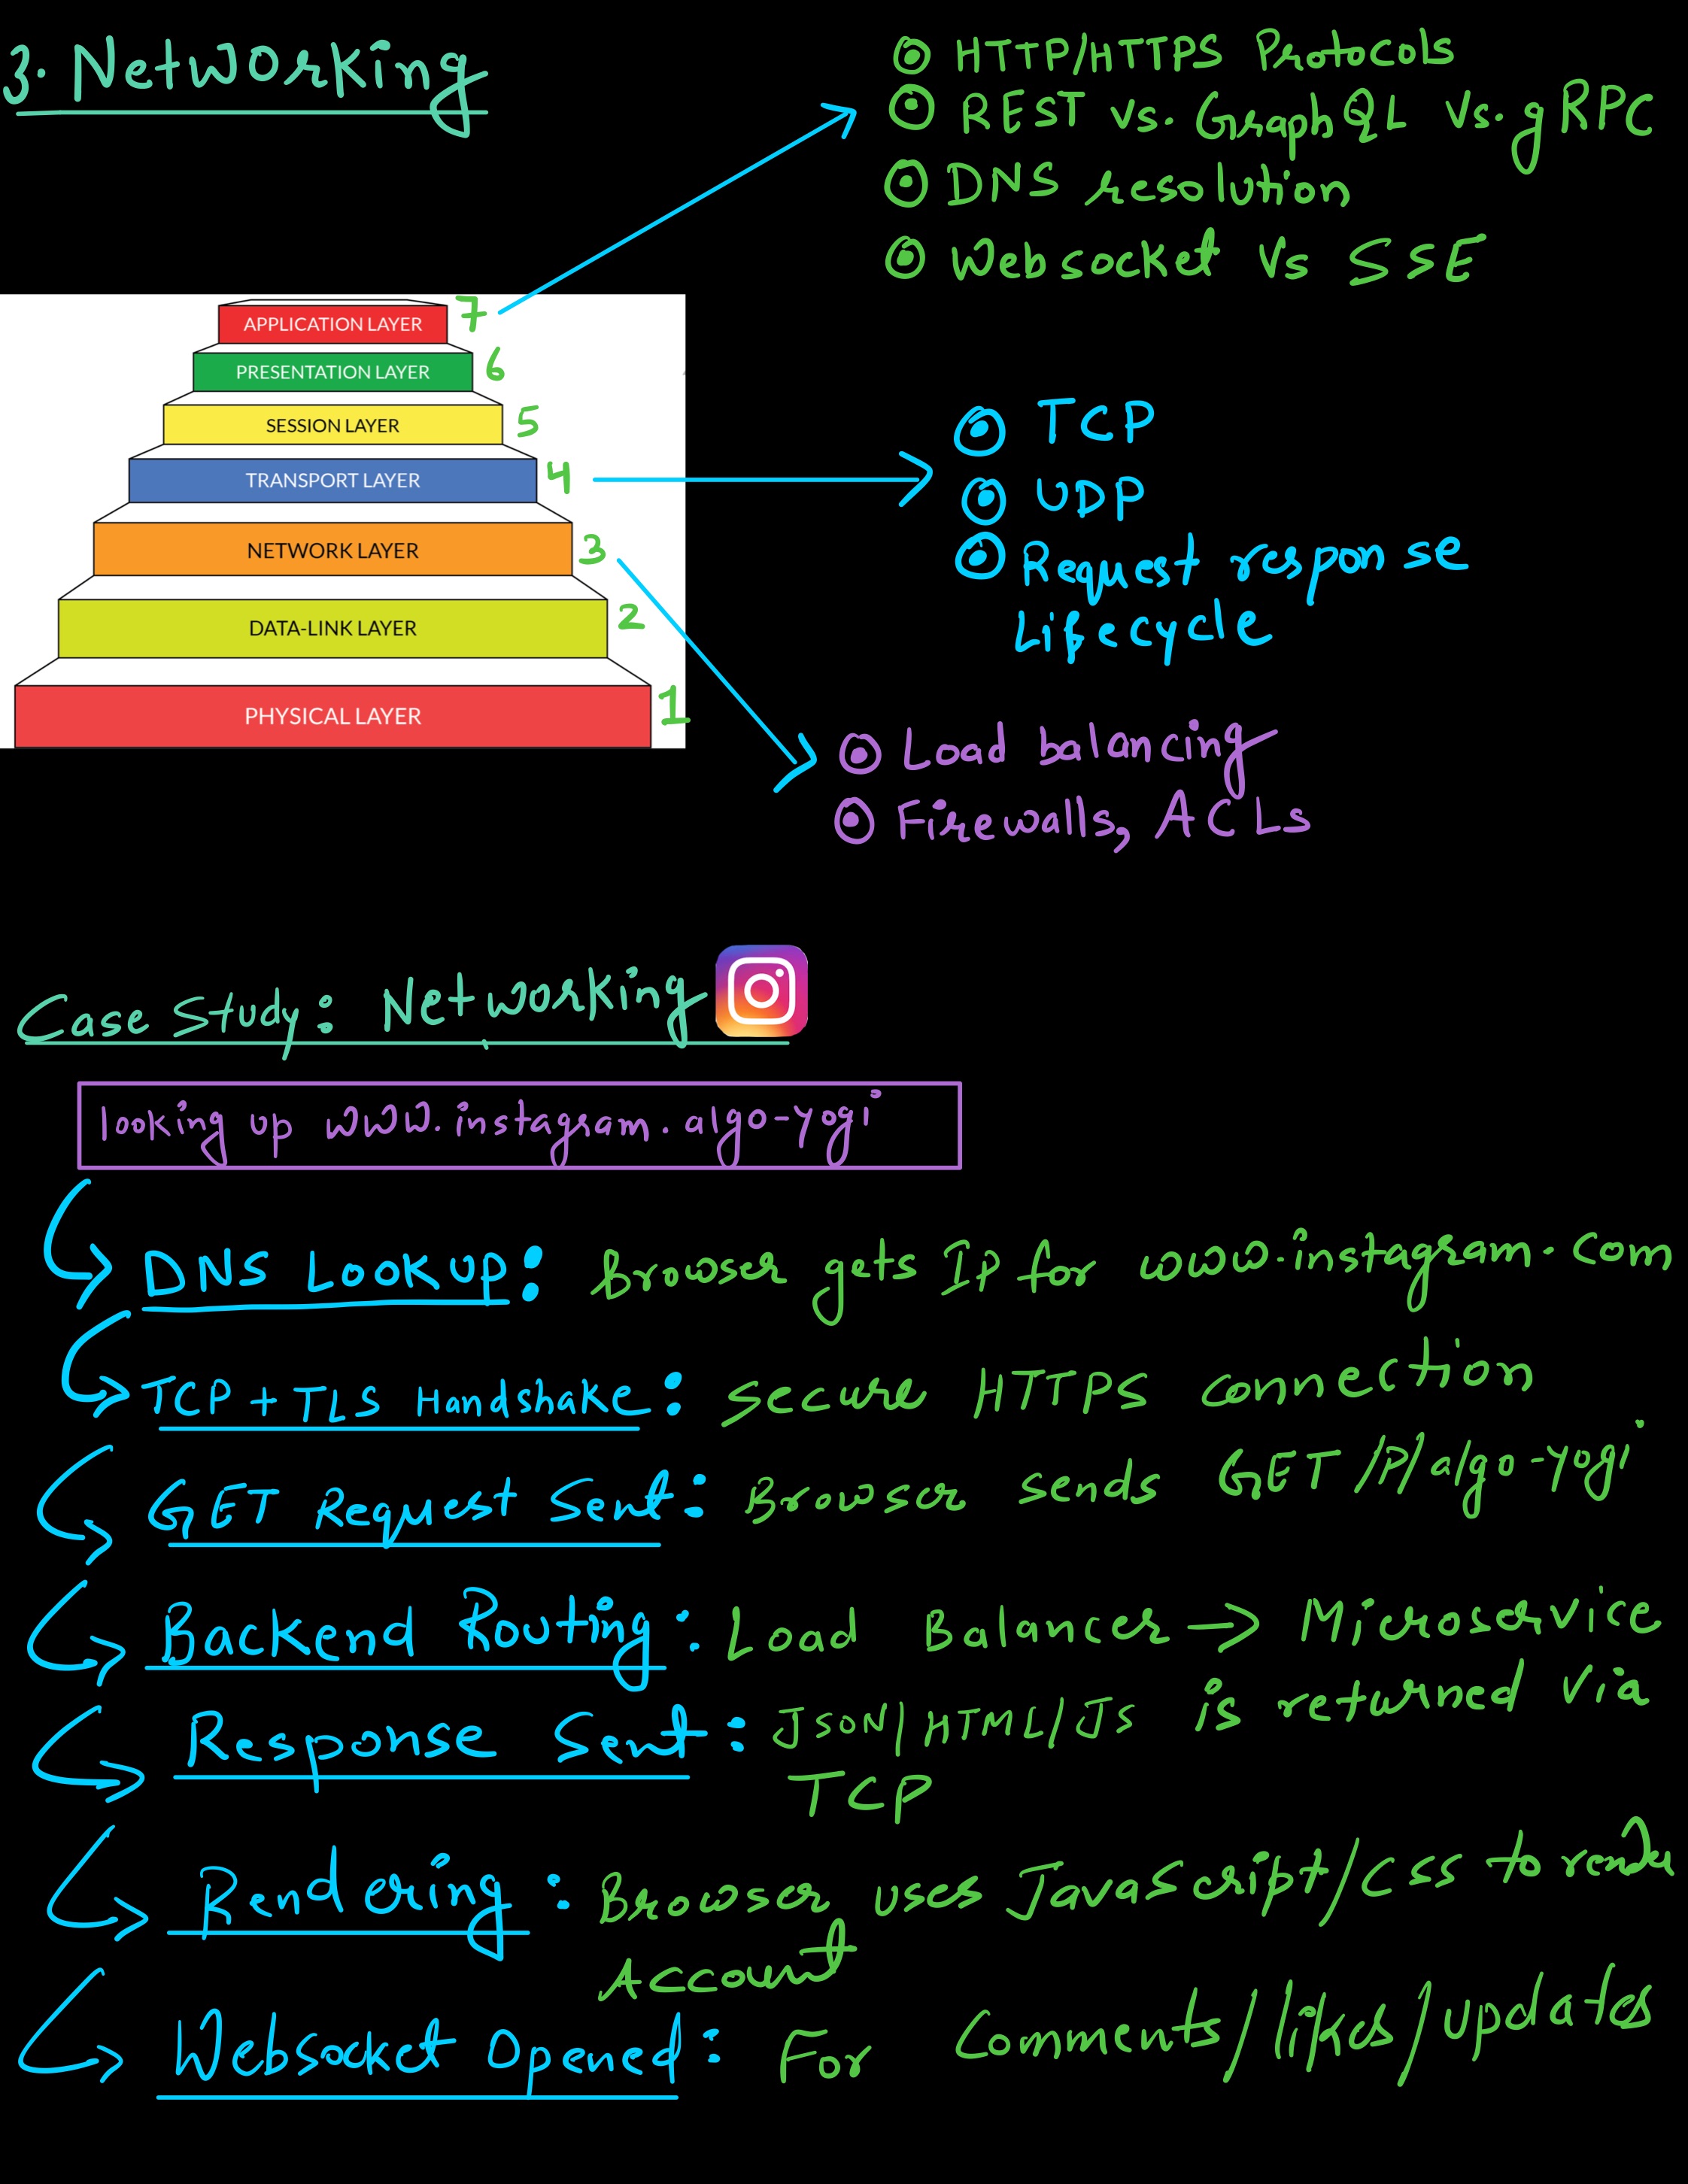 3. Networking
HTTP/HTTPS Protocols
REST vs. GraphQL vs. gRPC
DNS resolution
Websocket Vs SSE
APPLICATION LAYER 7
PRESENTATION LAYER 6
SESSION LAYER 5
TRANSPORT LAYER 4
NETWORK LAYER 3
DATA-LINK LAYER 2
PHYSICAL LAYER 1
TCP
UDP
Request response
Lifecycle
Load balancing
Firewalls, ACLs
Case Study: Networking
looking up www.instagram.algo-yogi
DNS Lookup: Browser gets IP for www.instagram.com
TCP + TLS Handshake: Secure HTTPS connection
GET Request Sent: Browser sends GET /P/algo-yogi
Backend Routing: Load Balancer → Microservice
Response Sent: JSON/HTML/JS is returned via
TCP
Rendering: Browser uses JavaScript/CSS to render
Account
Websocket Opened: For Comments/likes/updates